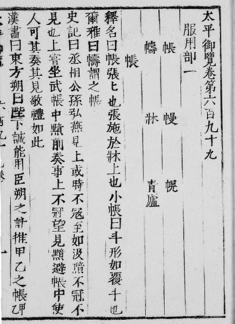 太平御覽卷第六百九十九
服用部一
帳 幔 幌
幬 牀 青廬
帳
釋名曰帳張也張施於牀上也小帳曰斗形如覆斗也
爾雅曰幬謂之帳
史記曰丞相公孫弘燕見上或時不冠至如汲黯不冠不
見也上嘗坐武帳中黯前奏事上不冠望見黯避帳中使
人可其奏其見敬禮如此
漢書曰東方朔曰陛下誠能用臣朔之計推甲乙之帳